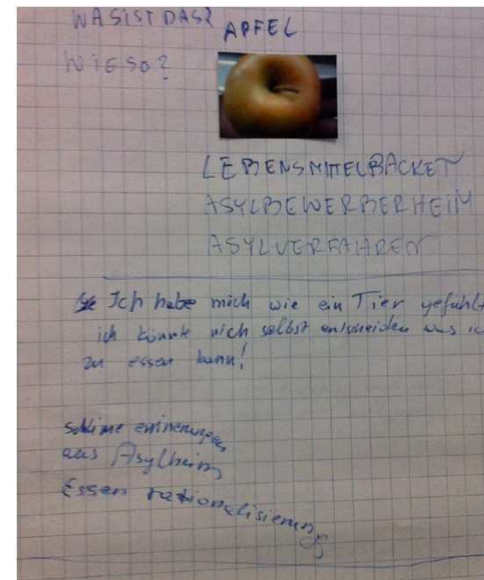 WAS IST DAS?
APFEL
WIESO?
LEBENSMITTELBACKET
ASYLBEWERBERHEIM
ASYLVERFAHREN
Ich habe mich wie ein Tier gefühlt
ich könnte nich selbst entscheiden was ic
zu essen kann!
erinerungen
aus Asylheim
Essen rationalisierung